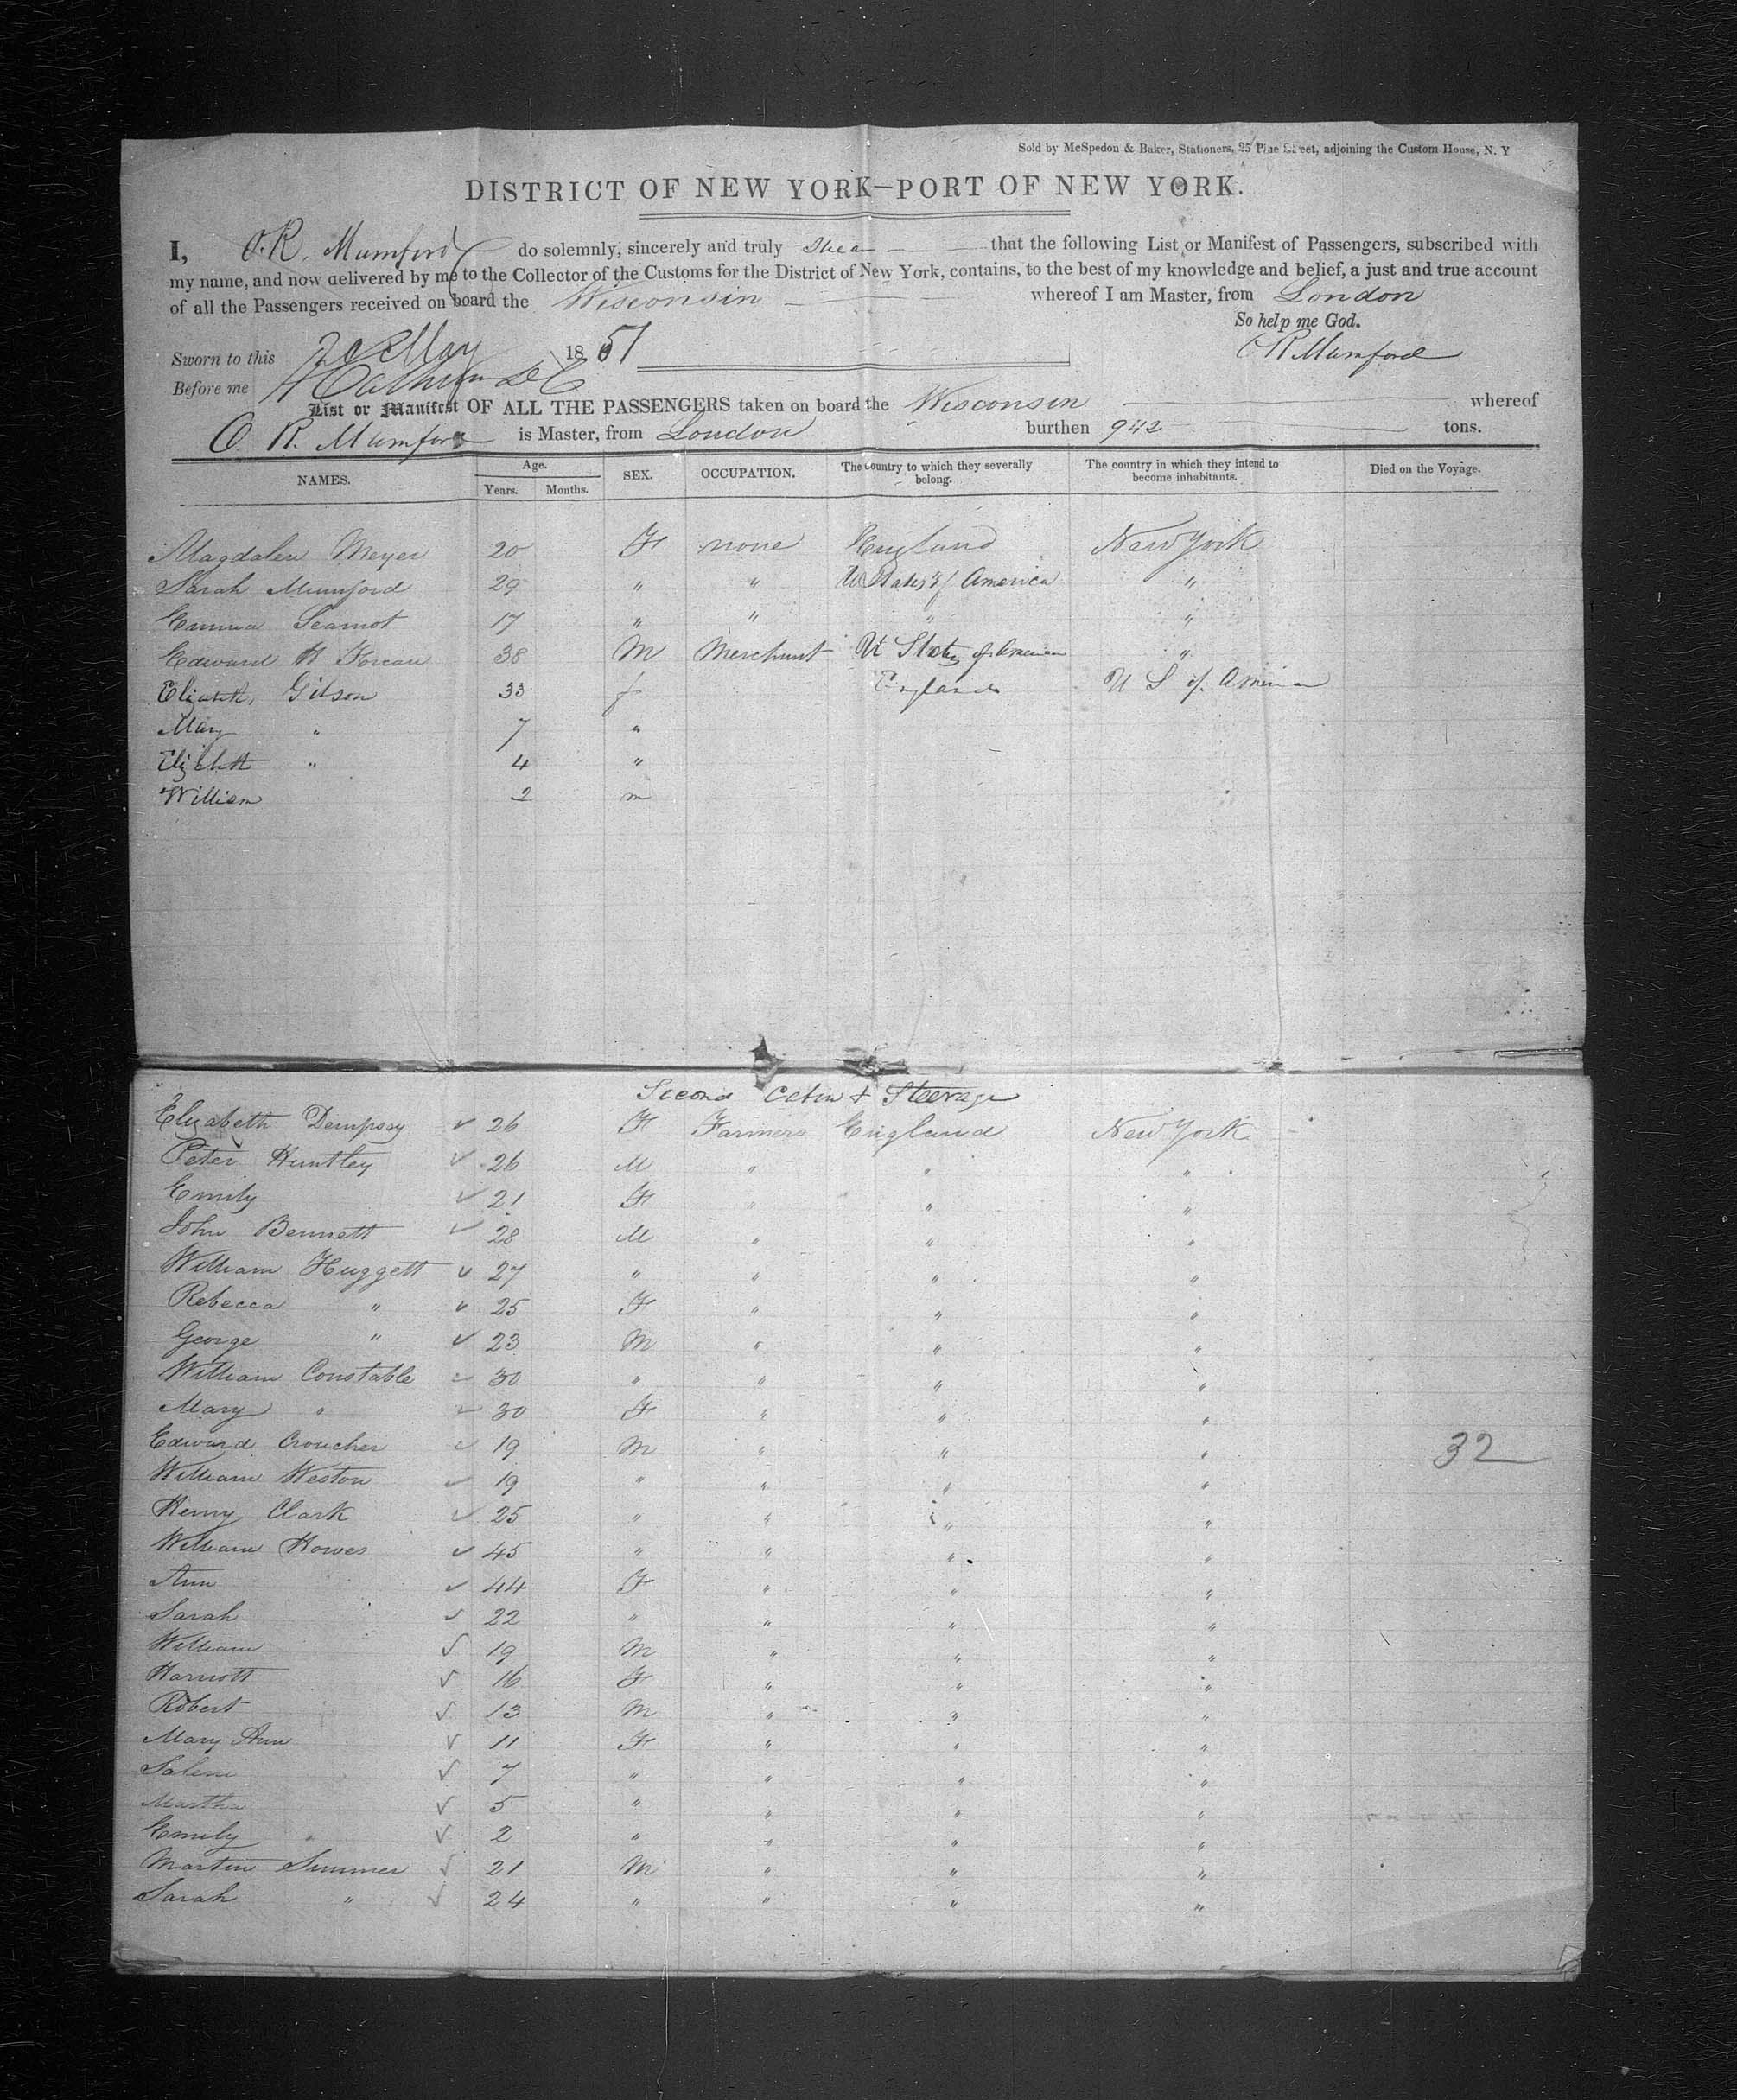 Sold by McSpedon & Baker, Stationers, 25 Pine Street, adjoining the Custom House, N. Y
DISTRICT OF NEW YORK—PORT OF NEW YORK.
I, O. R. Mumford do solemnly, sincerely and truly swear that the following List or Manifest of Passengers, subscribed with
my name, and now delivered by me to the Collector of the Customs for the District of New York, contains, to the best of my knowledge and belief, a just and true account
of all the Passengers received on board the Wisconsin whereof I am Master, from London
So help me God.
Sworn to this May 1851
O R Mumford
Before me
List or Manifest OF ALL THE PASSENGERS taken on board the Wisconsin whereof
O. R. Mumford is Master, from London burthen 942 tons.
NAMES. Age. Years. Months. SEX. OCCUPATION. The country to which they severally belong. The country in which they intend to become inhabitants. Died on the Voyage.
Magdalen Meyer 20 F none England New York
Sarah Mumford 29 " " U States of America "
Emma 17 " " " "
Edward H 38 M Merchant U States of America "
Elizabeth Gibson 33 f England U S of America
Mary " 7 "
Elizabeth " 4 "
William 2 m
Second Cabin & Steerage
Elizabeth Dempsey ✓ 26 F Farmers England New York
Peter Huntley ✓ 26 M " " "
Emily ✓ 21 F " " "
John Bennett ✓ 28 M " " "
William Huggett ✓ 27 " " " "
Rebecca " ✓ 25 F " " "
George " ✓ 23 M " " "
William Constable ✓ 30 " " " "
Mary " ✓ 30 F " " "
Edward Croucher ✓ 19 M " " " 32
William Weston ✓ 19 " " " "
Henry Clark ✓ 25 " " " "
William Howes ✓ 45 " " " "
Ann ✓ 44 F " " "
Sarah ✓ 22 " " " "
William ✓ 19 M " " "
Harriott ✓ 16 F " " "
Robert ✓ 13 M " " "
Mary Ann ✓ 11 F " " "
Salem ✓ 7 " " " "
Martha ✓ 5 " " " "
Emily " ✓ 2 " " " "
Martin Summer ✓ 21 M " " "
Sarah " ✓ 24 " " " "